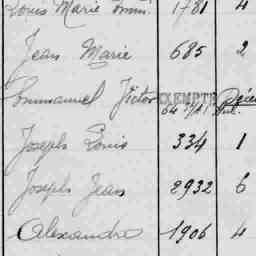 Louis Marie Emm. 1781 4
Jean Marie 685 2
Emmanuel Victor EXEMPTÉ
Joseph Louis 334 1
Joseph Jean 2932 6
Alexandre 1906 4